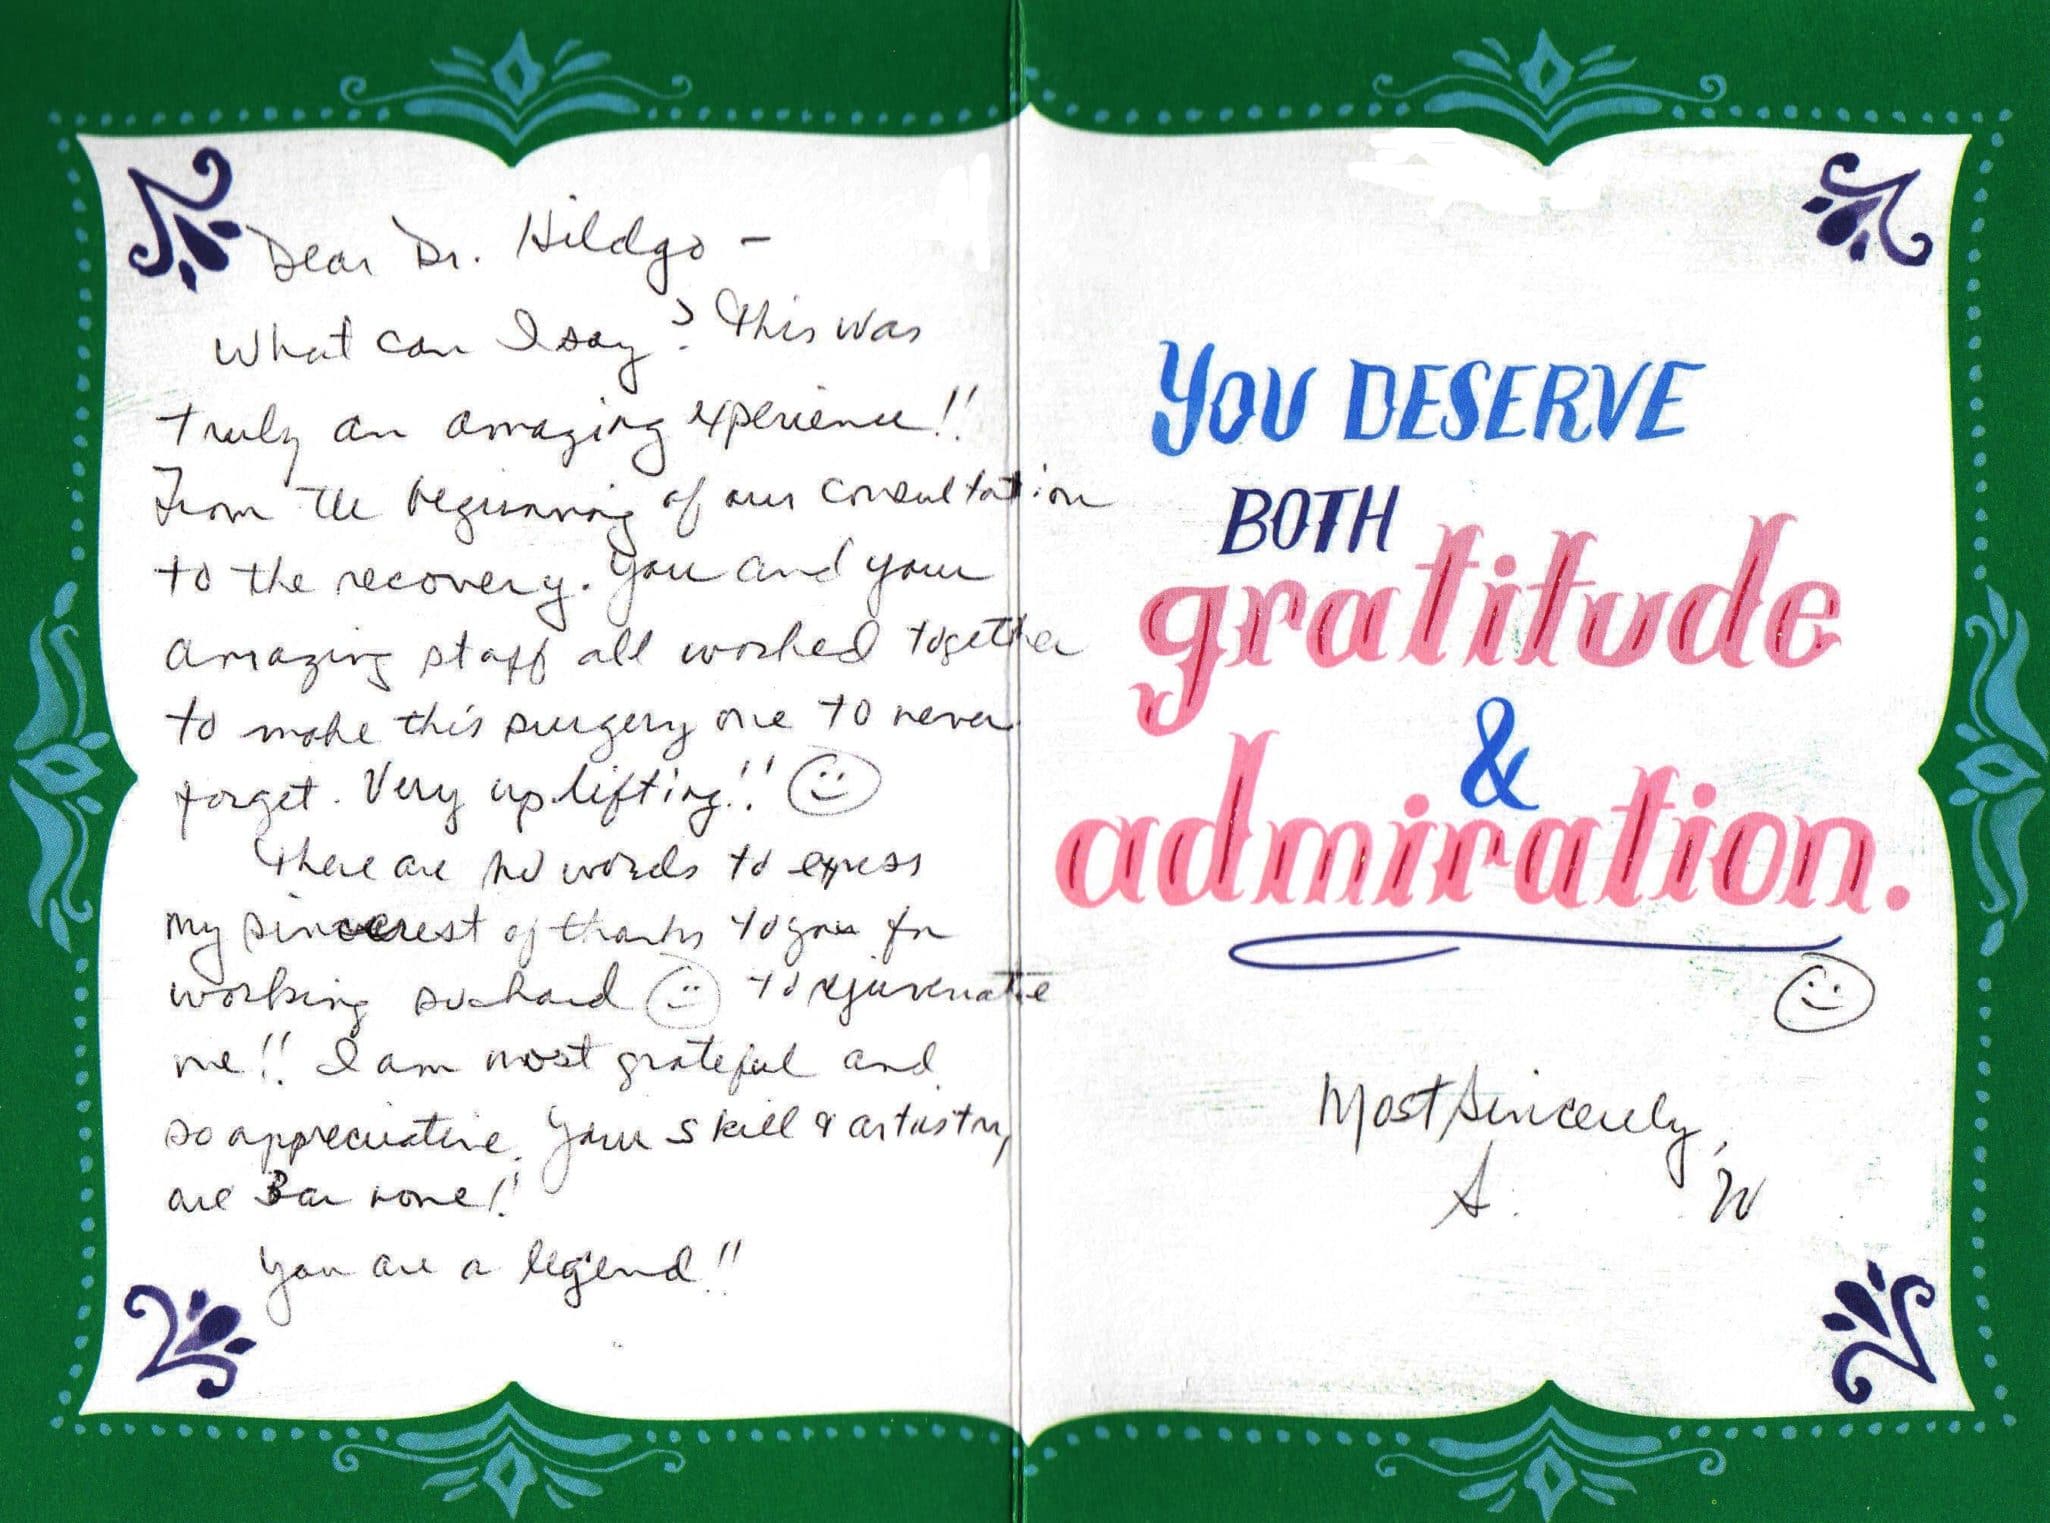 Dear Dr. Hildgo -
What can I say? This was
truly an amazing experience!!
From the beginning of our consultation
to the recovery. You and your
amazing staff all worked together
to make this surgery one to never
forget. Very uplifting!!
There are no words to express
my sincerest of thanks to you for
working so hard to rejuvenate
me!! I am most grateful and
so appreciative. Your skill & artistry
are Bar none!!
You are a legend!!
YOU DESERVE
BOTH
gratitude
&
admiration.
Most Sincerely,
S. W